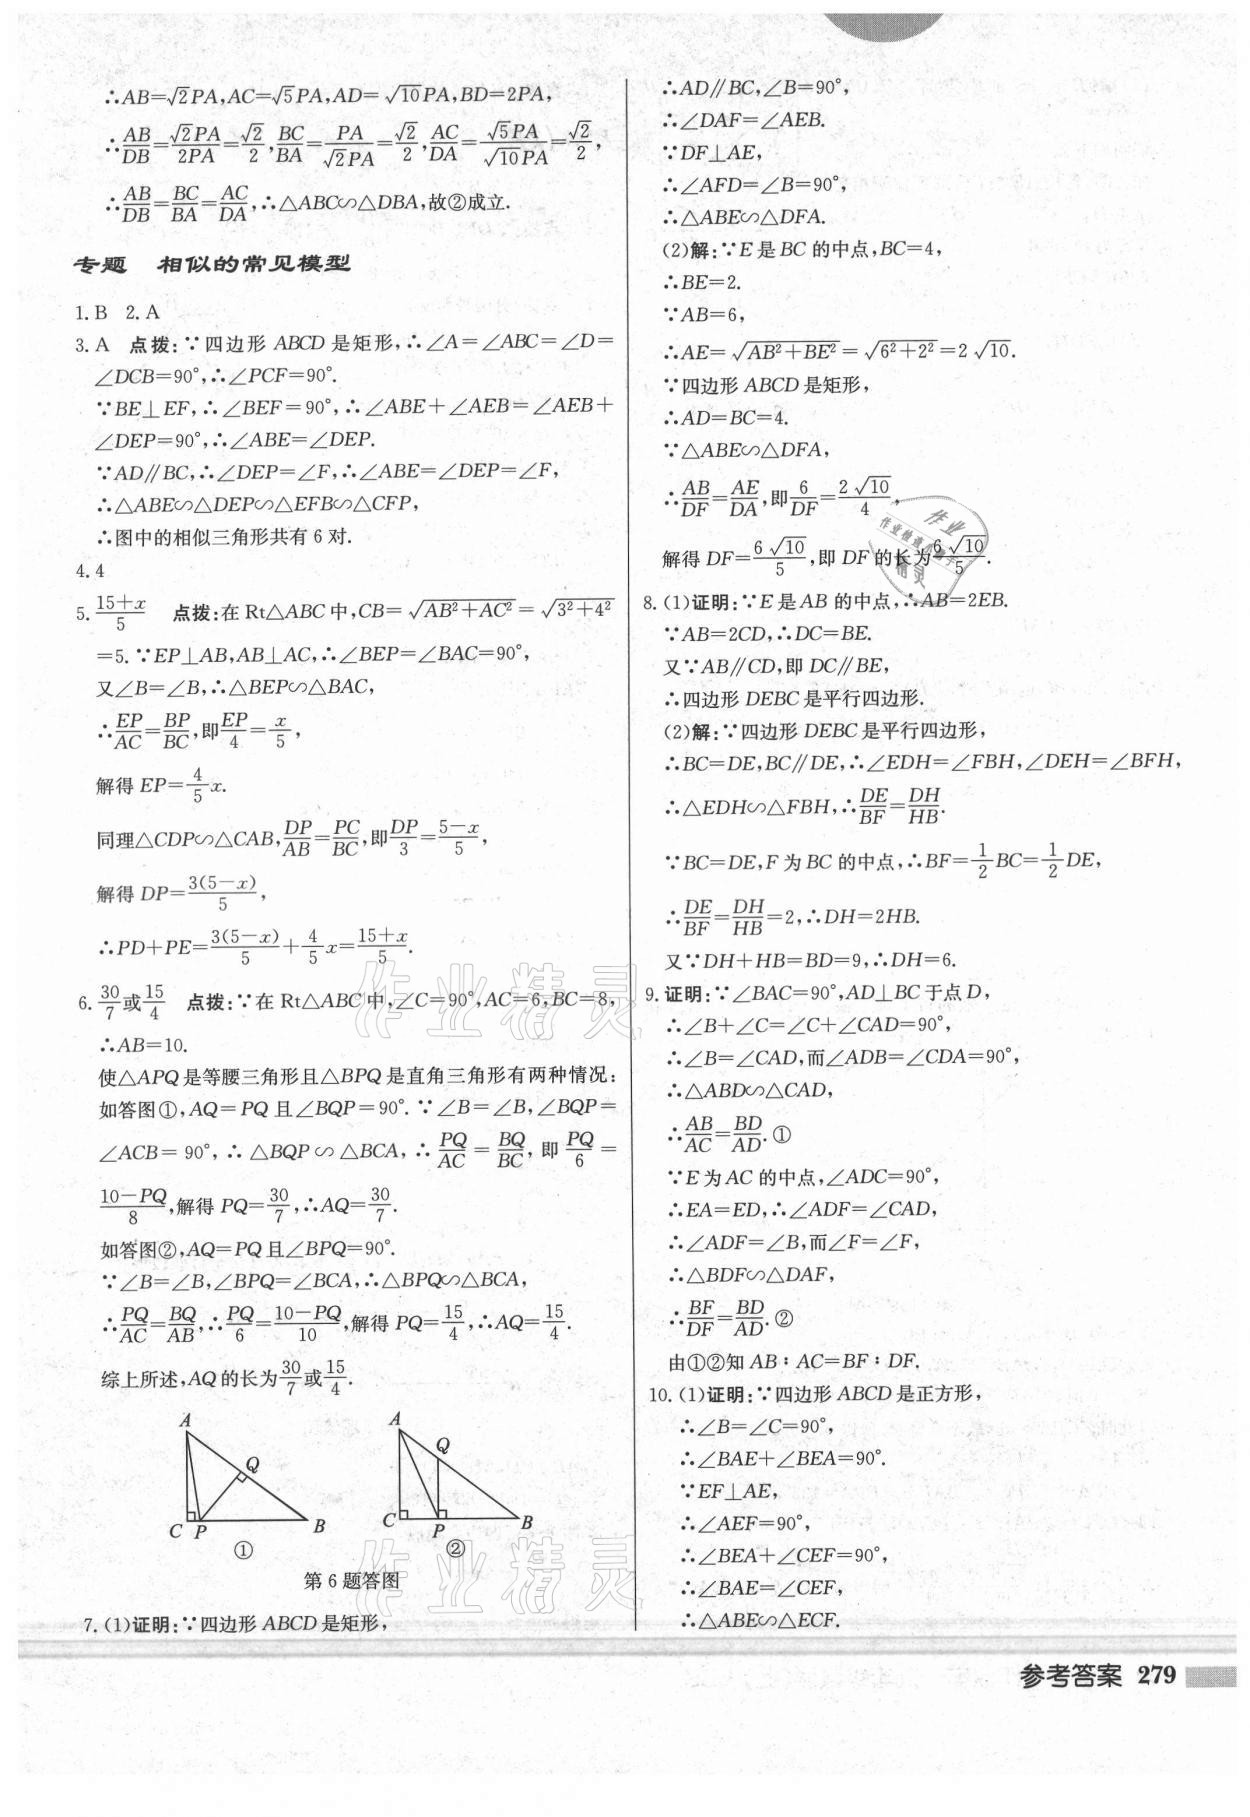 ∴AB=√2PA,AC=√5PA,AD=√10PA,BD=2PA,
∴AB/DB=√2PA/2PA=√2/2,BC/BA=PA/√2PA=√2/2,AC/DA=√5PA/√10PA=√2/2,
∴AB/DB=BC/BA=AC/DA,∴△ABC∽△DBA,故②成立.
专题 相似的常见模型
1. B 2. A
3. A 点拨:∵四边形 ABCD 是矩形,∴∠A=∠ABC=∠D=
∠DCB=90°,∴∠PCF=90°.
∵BE⊥EF,∴∠BEF=90°,∴∠ABE+∠AEB=∠AEB+
∠DEP=90°,∴∠ABE=∠DEP.
∵AD∥BC,∴∠DEP=∠F,∴∠ABE=∠DEP=∠F,
∴△ABE∽△DEP∽△EFB∽△CFP,
∴图中的相似三角形共有 6 对.
4. 4
5. (15+x)/5 点拨:在 Rt△ABC 中,CB=√(AB²+AC²)=√(3²+4²)
=5. ∵EP⊥AB,AB⊥AC,∴∠BEP=∠BAC=90°,
又∠B=∠B,∴△BEP∽△BAC,
∴EP/AC=BP/BC,即EP/4=x/5,
解得 EP=4/5x.
同理△CDP∽△CAB,DP/AB=PC/BC,即DP/3=(5-x)/5,
解得 DP=3(5-x)/5,
∴PD+PE=3(5-x)/5+4/5x=(15+x)/5.
6. 30/7或15/4 点拨:∵在 Rt△ABC 中,∠C=90°,AC=6,BC=8,
∴AB=10.
使△APQ是等腰三角形且△BPQ是直角三角形有两种情况:
如答图①,AQ=PQ 且∠BQP=90°. ∵∠B=∠B,∠BQP=
∠ACB=90°,∴△BQP∽△BCA,∴PQ/AC=BQ/BC,即PQ/6=
(10-PQ)/8,解得 PQ=30/7,∴AQ=30/7.
如答图②,AQ=PQ 且∠BPQ=90°.
∵∠B=∠B,∠BPQ=∠BCA,∴△BPQ∽△BCA,
∴PQ/AC=BQ/AB,∴PQ/6=(10-PQ)/10,解得 PQ=15/4,∴AQ=15/4.
综上所述,AQ的长为30/7或15/4.
A Q C P B ①
A Q C P B ②
第 6 题答图
7. (1)证明:∵四边形 ABCD 是矩形,
∴AD∥BC,∠B=90°,
∴∠DAF=∠AEB.
∵DF⊥AE,
∴∠AFD=∠B=90°,
∴△ABE∽△DFA.
(2)解:∵E 是 BC 的中点,BC=4,
∴BE=2.
∵AB=6,
∴AE=√(AB²+BE²)=√(6²+2²)=2√10.
∵四边形 ABCD 是矩形,
∴AD=BC=4.
∵△ABE∽△DFA,
∴AB/DF=AE/DA,即6/DF=2√10/4,
解得 DF=6√10/5,即 DF 的长为6√10/5.
8. (1)证明:∵E 是 AB 的中点,∴AB=2EB.
∵AB=2CD,∴DC=BE.
又∵AB∥CD,即 DC∥BE,
∴四边形 DEBC 是平行四边形.
(2)解:∵四边形 DEBC 是平行四边形,
∴BC=DE,BC∥DE,∴∠EDH=∠FBH,∠DEH=∠BFH,
∴△EDH∽△FBH,∴DE/BF=DH/HB.
∵BC=DE,F 为 BC 的中点,∴BF=1/2BC=1/2DE,
∴DE/BF=DH/HB=2,∴DH=2HB.
又∵DH+HB=BD=9,∴DH=6.
9. 证明:∵∠BAC=90°,AD⊥BC 于点 D,
∴∠B+∠C=∠C+∠CAD=90°,
∴∠B=∠CAD,而∠ADB=∠CDA=90°,
∴△ABD∽△CAD,
∴AB/AC=BD/AD.①
∵E 为 AC 的中点,∠ADC=90°,
∴EA=ED,∴∠ADF=∠CAD,
∴∠ADF=∠B,而∠F=∠F,
∴△BDF∽△DAF,
∴BF/DF=BD/AD.②
由①②知 AB∶AC=BF∶DF.
10. (1)证明:∵四边形 ABCD 是正方形,
∴∠B=∠C=90°,
∴∠BAE+∠BEA=90°.
∵EF⊥AE,
∴∠AEF=90°,
∴∠BEA+∠CEF=90°,
∴∠BAE=∠CEF,
∴△ABE∽△ECF.
作业精灵
作业精灵
参考答案 279